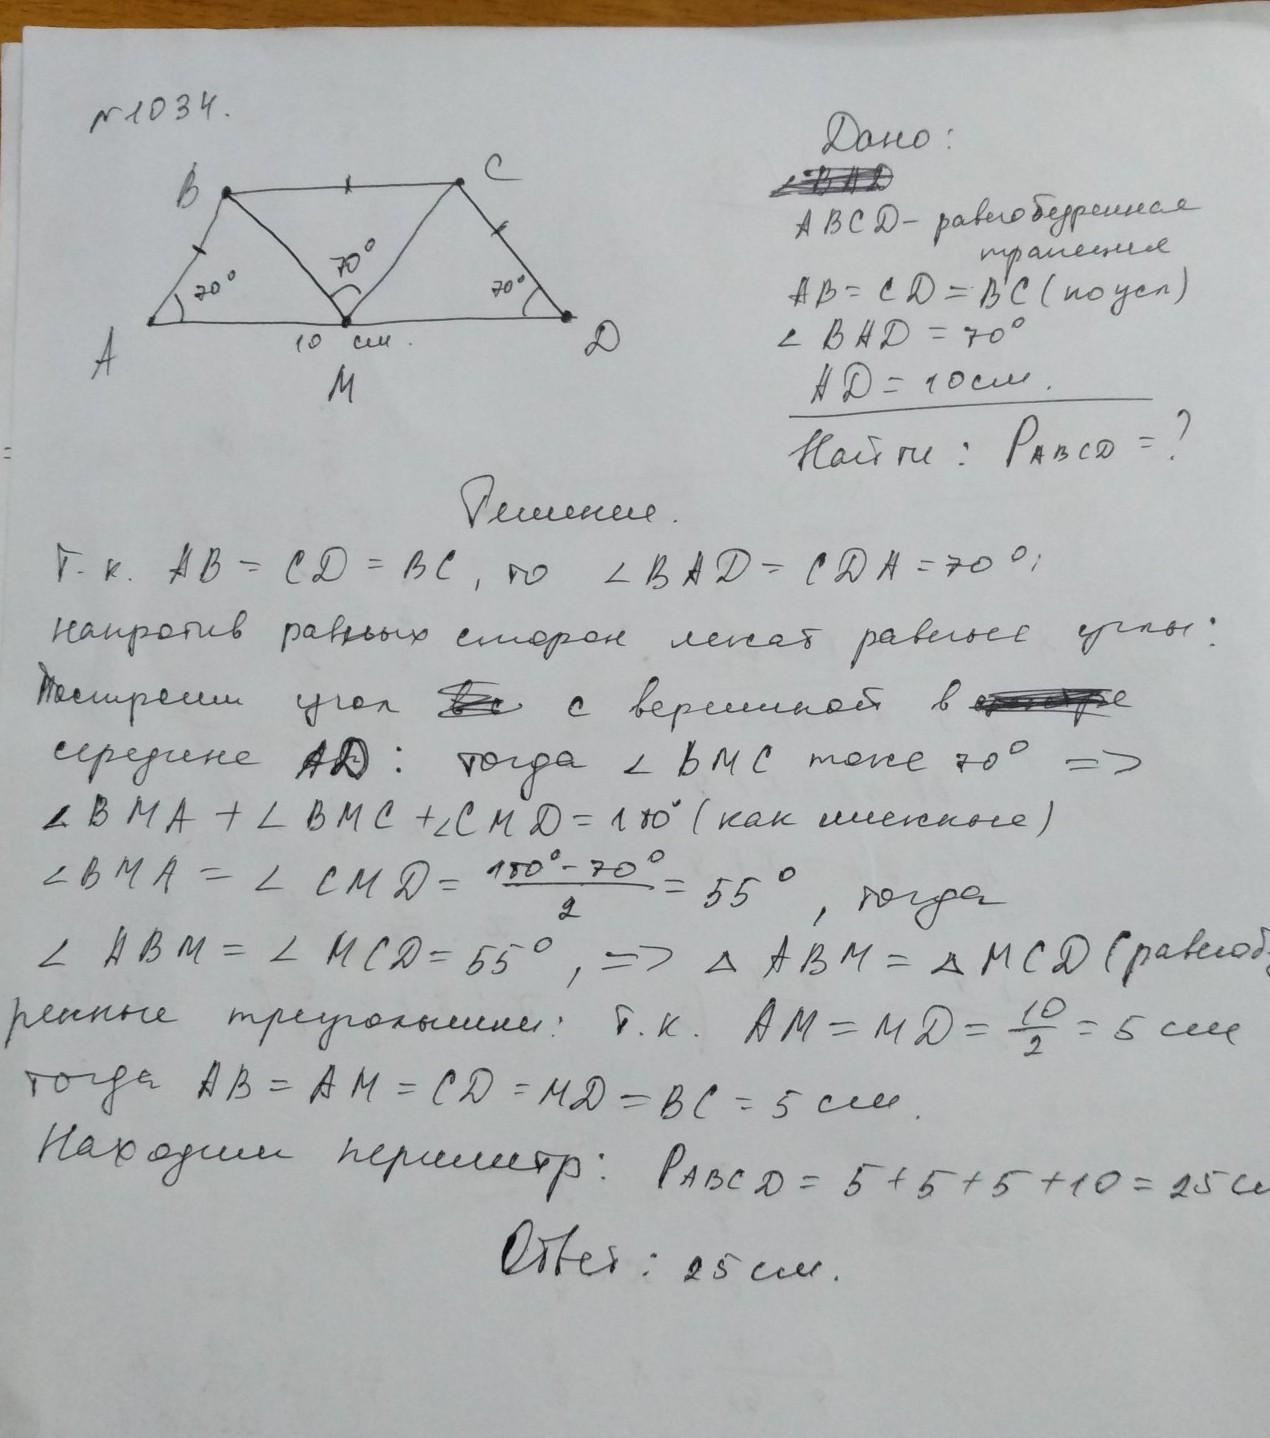 №1034.
B
C
70°
70°
70°
A
10 см.
M
D
Дано:
ABCD - равнобедренная
трапеция
AB = CD = BC (по усл)
∠ BAD = 70°
AD = 10 см.
Найти: PABCD = ?
Решение.
Т.к. AB = CD = BC, то ∠BAD = CDA = 70°;
напротив равных сторон лежат равные углы:
Построим угол с вершиной в
середине AD: тогда ∠ BMC тоже 70° =>
∠BMA + ∠BMC + ∠CMD = 180° (как смежные)
∠BMA = ∠ CMD = 180° - 70° / 2 = 55°, тогда
∠ ABM = ∠ MCD = 55°, => △ ABM = △ MCD (равноб
ренные треугольники: т.к. AM = MD = 10/2 = 5 см
тогда AB = AM = CD = MD = BC = 5 см.
Находим периметр: PABCD = 5 + 5 + 5 + 10 = 25 см
Ответ: 25 см.